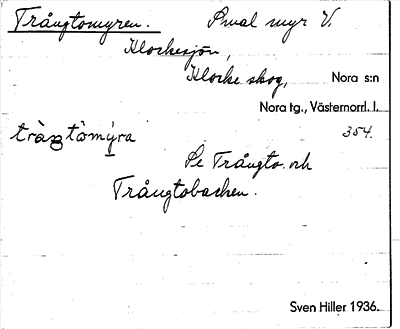 Trångtomyren. Smal myr V.
Klockesjön,
Klocke skog, Nora s:n
Nora tg., Västernorrl. l.
354.
Se Trångto och
Trångtobacken.
Sven Hiller 1936.